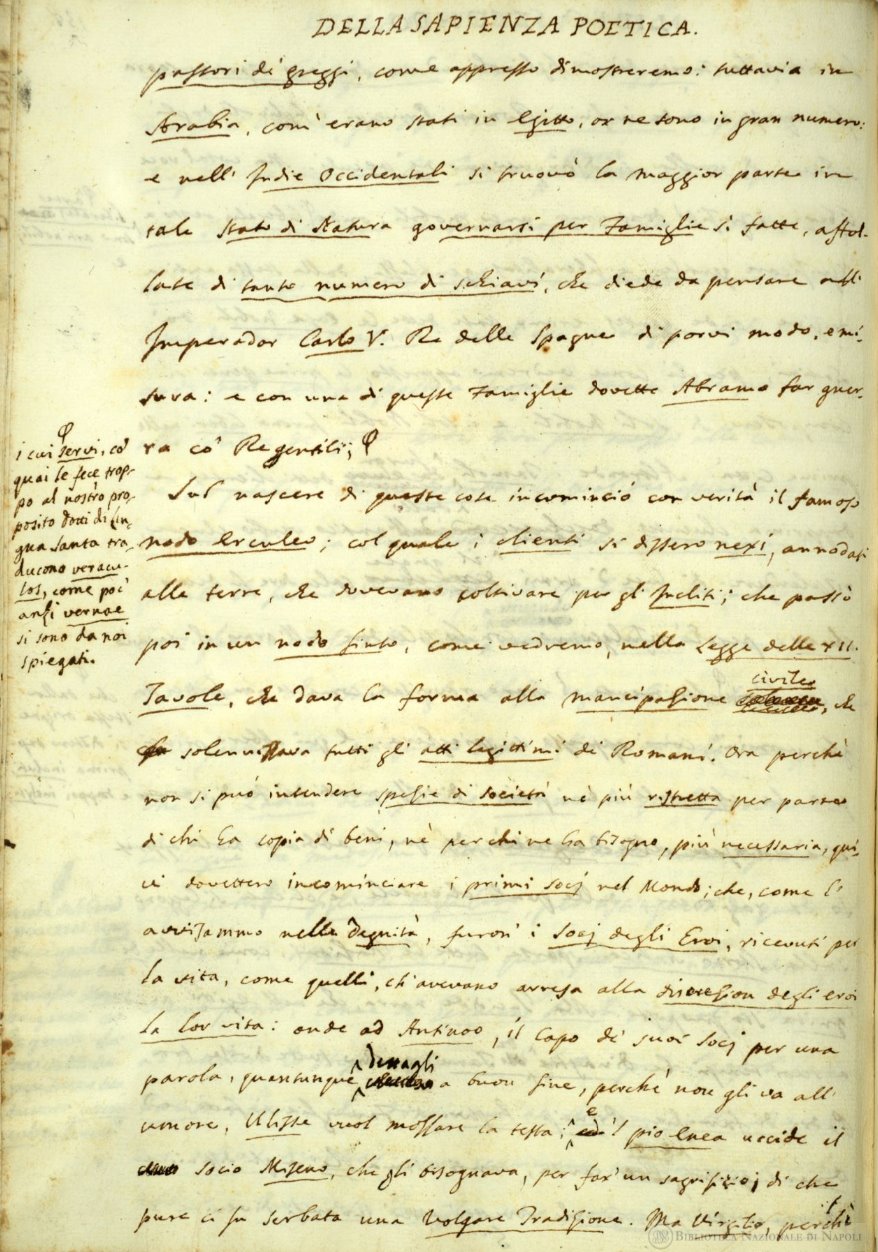 DELLA SAPIENZA POETICA.
pastori di greggi, come appresso dimostreremo: tuttavia in
Arabia, com' erano stati in Egitto, or ne sono in gran numero:
e nell' Indie Occidentali si truovò la maggior parte in
tale Stato di Natura governarsi per Famiglie sì fatte, affol-
late di tanto numero di schiavi, che diede da pensare all'
Imperador Carlo V. Re delle Spagne di porvi modo, e mi-
sura: e con una di queste Famiglie dovette Abramo far guer-
ra co' Re gentili;
i cui servi, co'
quai le fece trop-
po al nostro pro-
posito dotti di lin-
gua Santa tra-
ducono vernacu-
los, come poc'
anzi vernae
si sono da noi
spiegati.
Sul nascere di queste cose incominciò con verità il famoso
nodo Erculeo; col quale i clienti si dissero nexi, annodati
alle terre, che dovevano coltivare per gl' Incliti; che passò
poi in un nodo finto, come vedremo, nella Legge delle XII.
Tavole, che dava la forma alla mancipazione civile, che
solennizzava tutti gli atti legittimi de' Romani. Ora perchè
non si può intendere spezie di società nè più ristretta per parte
di chi ha copia di beni, nè per chi ne ha bisogno, più necessaria, qui-
vi dovettero incominciare i primi Socj nel Mondo; che, come l'
avvisammo nelle Degnità, furon' i Socj degli Eroi, ricevuti per
la vita, come quelli, ch' avevano arresa alla discrezion degli eroi
la lor vita: onde ad Antinoo, il capo de' suoi Socj per una
parola, quantunque dettagli a buon fine, perchè non gli va all'
umore, Ulisse vuol mozzare la testa; e 'l pio Enea uccide il
socio Miseno, che gli bisognava, per far' un sagrifizio; di che
pure ci fu serbata una Volgare Tradizione. Ma Virgilio, perchè
BIBLIOTECA NAZIONALE DI NAPOLI